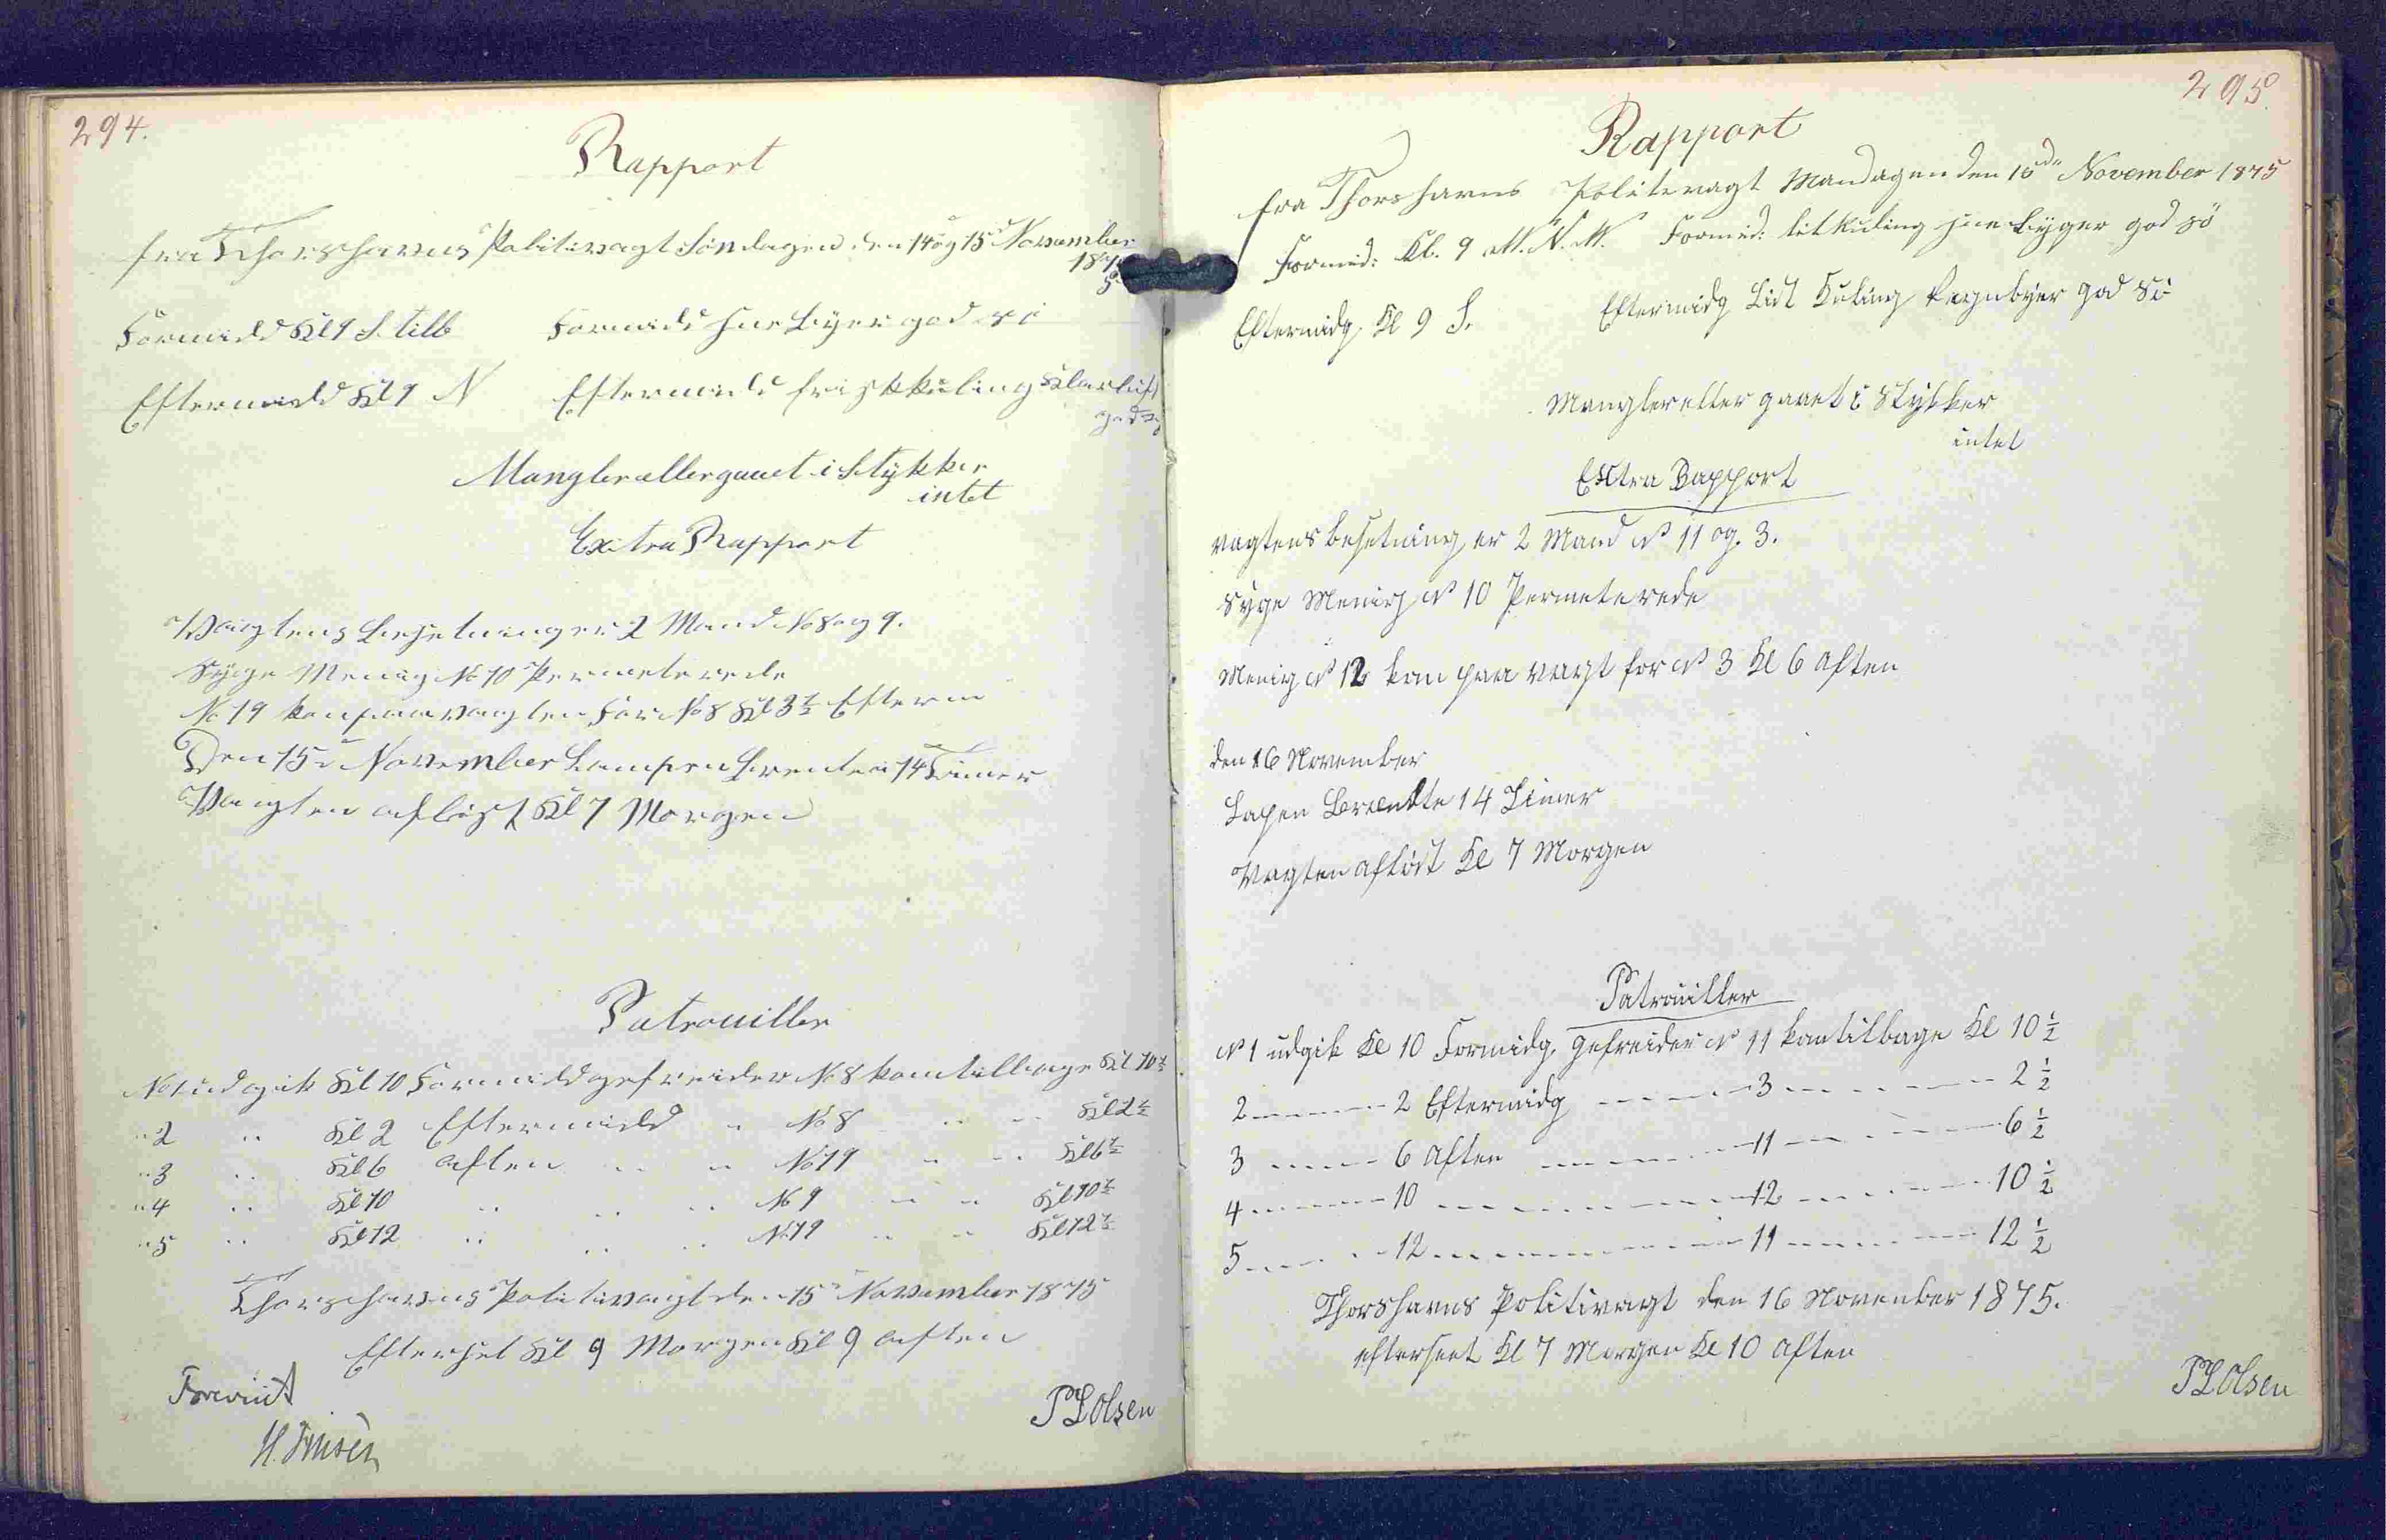 294.
Rapport
fra Thorshavns Politivagt Söndagen den 14 og 15 November
1875
Formidd Kl 9 S. till
Formidd Sne Byer god sö
Eftermidd Kl 9 N
Eftermidd frisk kuling Klarluft
god sö
Mangler eller gaaet i Stykker
intet
Extra Rapport
Vagtens Besetning er 2 Mand No 8 og 9.
Syge Menig No 10 Permeterede
No 19 kom paa vagten for No 8 Kl 3½ Efterm
Den 15 November Lampen brente i 14 Timer
Vagten aflöst Kl 7 Morgen
Patrouiller
No 1 udgik Kl 10 Formidd gefreider No 8 kom tilbage Kl 10½
" 2 " Kl 2 Eftermidd " No 8 " " Kl 2½
" 3 " Kl 6 Aften " " No 19 " " Kl 6½
" 4 " Kl 10 " " " No 9 " " Kl 10½
" 5 " Kl 12 " " " No 19 " " Kl 12½
Thorshavns Politivagt den 15 November 1875
Efterset Kl 9 Morgen Kl 9 aften
Forevist
PLOlsen
295.
Rapport
fra Thorshavns Politivagt Mandagen den 15de November 1875
Formid: Kl. 9 N. Formid: litkuling sne byger god sö
Eftermidg. Kl 9 S. Eftermidg Lidt Kuling Regnbyer god sö
Mangler eller gaaet i Stykker
intet
Extra Rapport
vagtens besetning er 2 Mand No 11 og. 3.
Syge Menig No 10 Permeterede
Menig No 12 kom paa vagt for No 3 Kl 6 Aften
den 16 November
Lapen Brændte 14 Timer
Vagten aflöst Kl 7 Morgen
Patrouiller
No 1 udgik Kl 10 Formidg. gefreider No 11 kom tilbage Kl 10½
2 ------ 2 Eftermidg ------ 3 ------ 2½
3 ------ 6 Aften ------ 11 ------ 6½
4 ------ 10 ------ 12 ------ 10½
5 ------ 12 ------ 11 ------ 12½
Thorshavns Politivagt den 16 November 1875.
efterseet Kl 7 Morgen Kl 10 Aften
PLOlsen